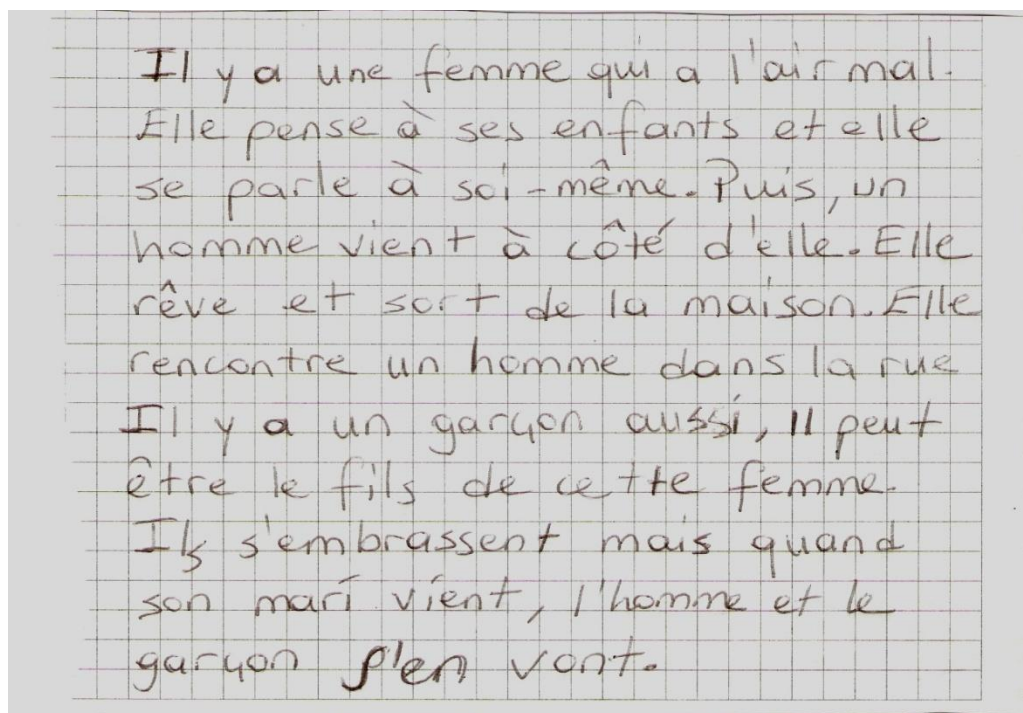 Il y a une femme qui a l'air mal.
Elle pense à ses enfants et elle
se parle à soi-même. Puis, un
homme vient à côté d'elle. Elle
rêve et sort de la maison. Elle
rencontre un homme dans la rue
Il y a un garçon aussi, il peut
être le fils de cette femme.
Ils s'embrassent mais quand
son mari vient, l'homme et le
garçon s'en vont.